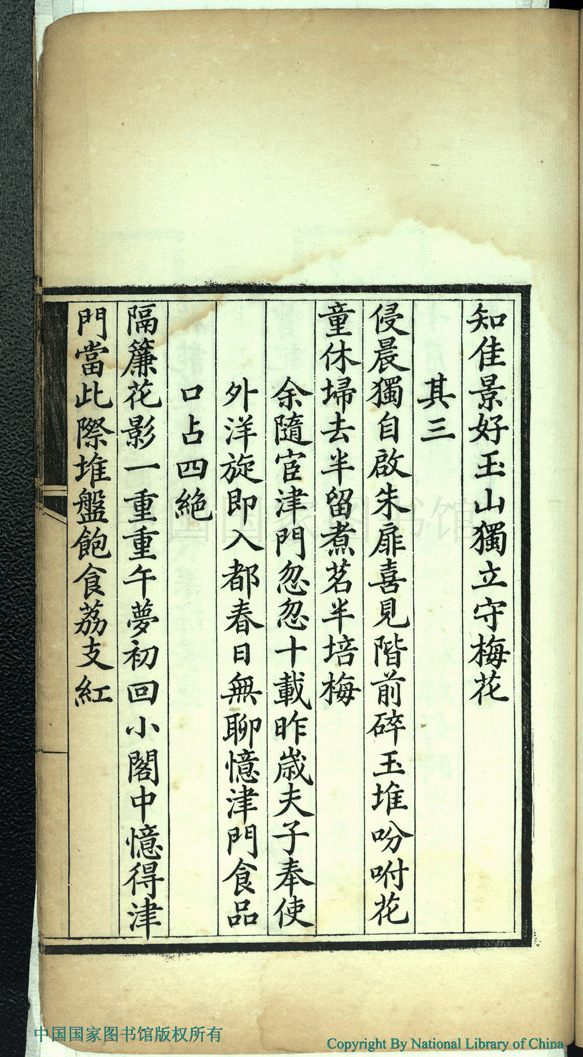 知佳景好玉山獨立守梅花
其三
侵晨獨自啟朱扉喜見階前碎玉堆吩咐花
童休埽去半留煮茗半培梅
余隨宦津門忽忽十載昨歲夫子奉使
外洋旋即入都春日無聊憶津門食品
口占四絕
隔簾花影一重重午夢初回小閣中憶得津
門當此際堆盤飽食荔支紅
中国国家图书馆
中国国家图书馆版权所有
Copyright By National Library of China